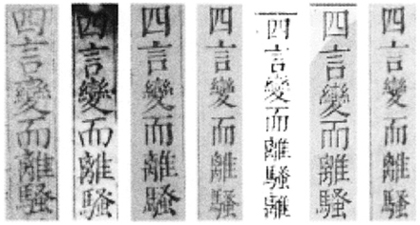 四言變而離騷
四言變而離騷
四言變而離騷離
四言變而離騷
四言變而離騷
四言變而離騷
四言變而離騷